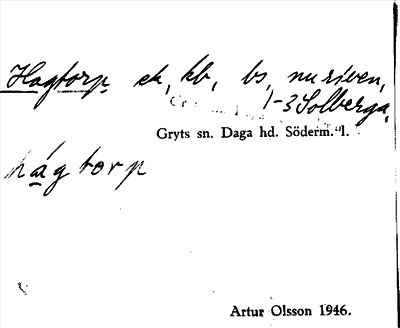 Hagtorp, ek, kb, bs, nu riven,
1-3 Solberga,
Gryts sn. Daga hd. Söderm. l.
hágtorp
Artur Olsson 1946.